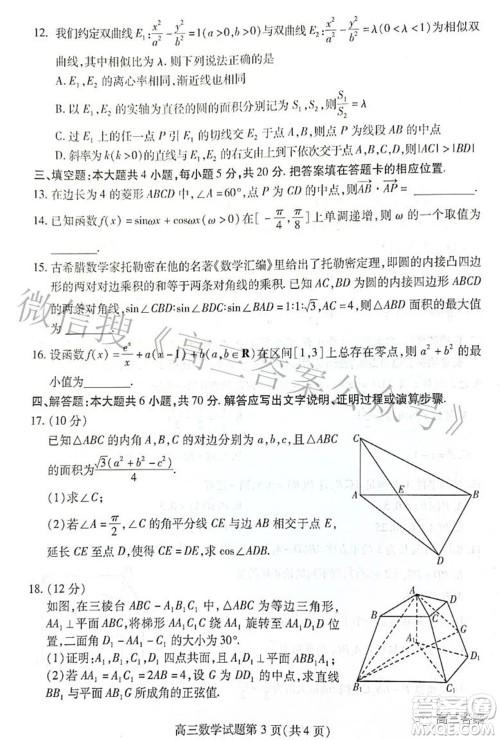 12. 我们约定双曲线 E₁:x²/a²-y²/b²=1(a>0,b>0)与双曲线 E₂:x²/a²-y²/b²=λ(0<λ<1)为相似双
曲线,其中相似比为 λ. 则下列说法正确的是
A. E₁,E₂ 的离心率相同,渐近线也相同
B. 以 E₁,E₂ 的实轴为直径的圆的面积分别记为 S₁,S₂,则 S₁/S₂=λ
C. 过 E₁ 上的任一点 P 引 E₁ 的切线交 E₂ 于点 A,B,则点 P 为线段 AB 的中点
D. 斜率为 k(k>0)的直线与 E₁,E₂ 的右支由上到下依次交于点 A,B,C,D,则|AC|>|BD|
三、填空题:本大题共 4 小题,每小题 5 分,共 20 分. 把答案填在答题卡的相应位置.
13. 在边长为 4 的菱形 ABCD 中,∠A=60°,点 P 为 CD 的中点,则AB·AP=
14. 已知函数 f(x)=sinωx+cosωx(ω>0)在[-π/4,π/8]上单调递增,则 ω 的一个取值为
.
15. 古希腊数学家托勒密在他的名著《数学汇编》里给出了托勒密定理,即圆的内接凸四边
形的两对对边乘积的和等于两条对角线的乘积. 已知 AC,BD 为圆的内接四边形 ABCD
的两条对角线,sin∠CBD:sin∠BDC:sin∠BAD=1:1:√3,AC=4,则△ABD 面积的最大值
为 .
16. 设函数 f(x)=eˣ/x+a(x-1)+b(a,b∈R)在区间[1,3]上总存在零点,则 a²+b² 的最
小值为 .
四、解答题:本大题共 6 小题,共 70 分. 解答应写出文字说明、证明过程或演算步骤.
17. (10 分)
已知△ABC 的内角 A,B,C 的对边分别为 a,b,c,且△ABC
的面积为 √3(a²+b²-c²)/4.
(1)求∠C;
(2)若∠A=π/2,∠C 的角平分线 CE 与边 AB 相交于点 E,
延长 CE 至点 D,使得 CE=DE,求 cos∠ADB.
C
A
E
B
D
18. (12 分)
如图,在三棱台 ABC-A₁B₁C₁ 中,底面为等边三角形,
AA₁⊥平面 ABC,将梯形 AA₁C₁C 绕 AA₁ 旋转至 AA₁D₁D
位置,二面角 D₁-AA₁-C₁ 的大小为 30°.
(1)证明:A₁,B₁,C₁,D₁ 四点共面,且 A₁D₁⊥B₁C₁;
(2)若 AA₁=A₁C₁=2AC=4,设 G 为 DD₁ 的中点,求直线
BB₁ 与平面 AB₁G 所成角的正弦值.
A
D
B
C
G
A₁
D₁
B₁
C₁
高三数学试题第 3 页(共 4 页)
微信搜《高三答案公众号》